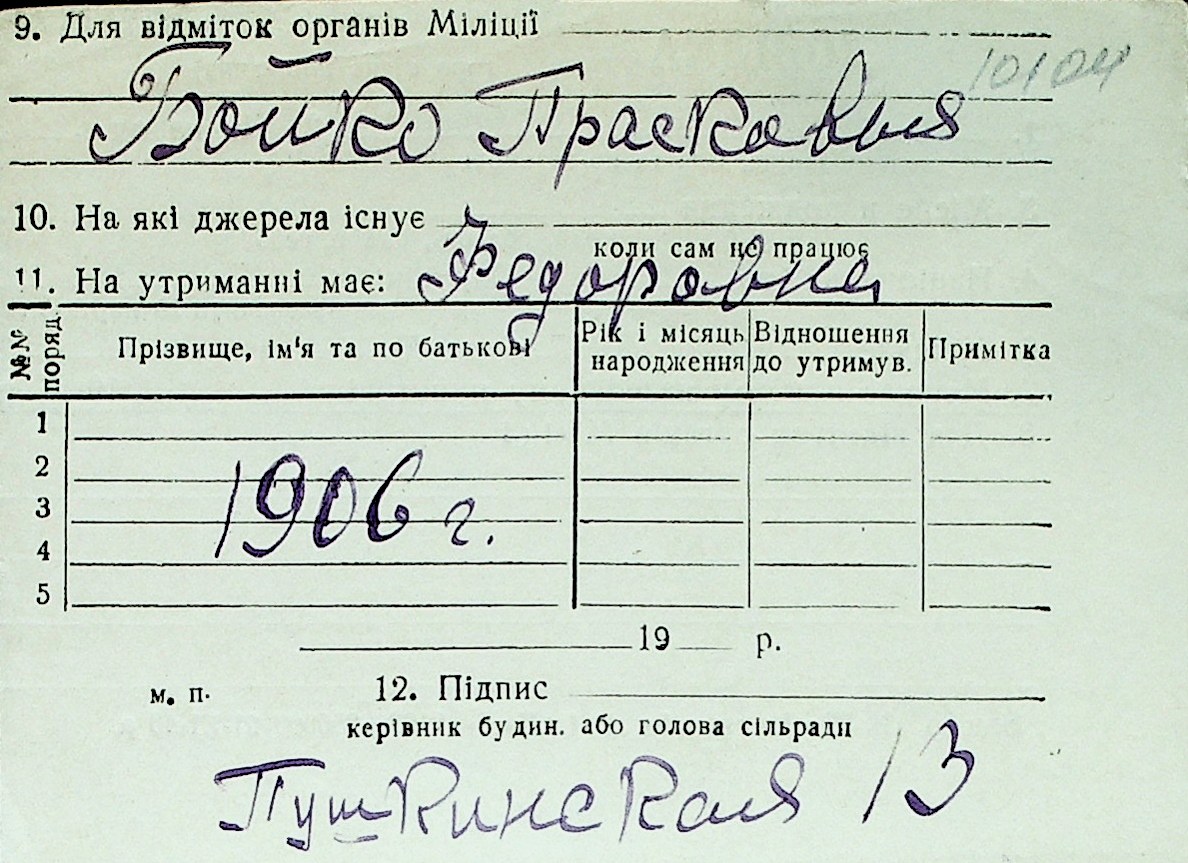 9. Для відміток органів Міліції
10104
Бойко Прасковья
10. На які джерела існує
коли сам не працює
11. На утриманні має:
Федоровна
№№ поряд. Прізвище, ім'я та по батькові Рік і місяць народження Відношення до утримув. Примітка
1
2
1906 г.
3
4
5
19 р.
м. п. 12. Підпис
керівник будин. або голова сільради
Пушкинская 13